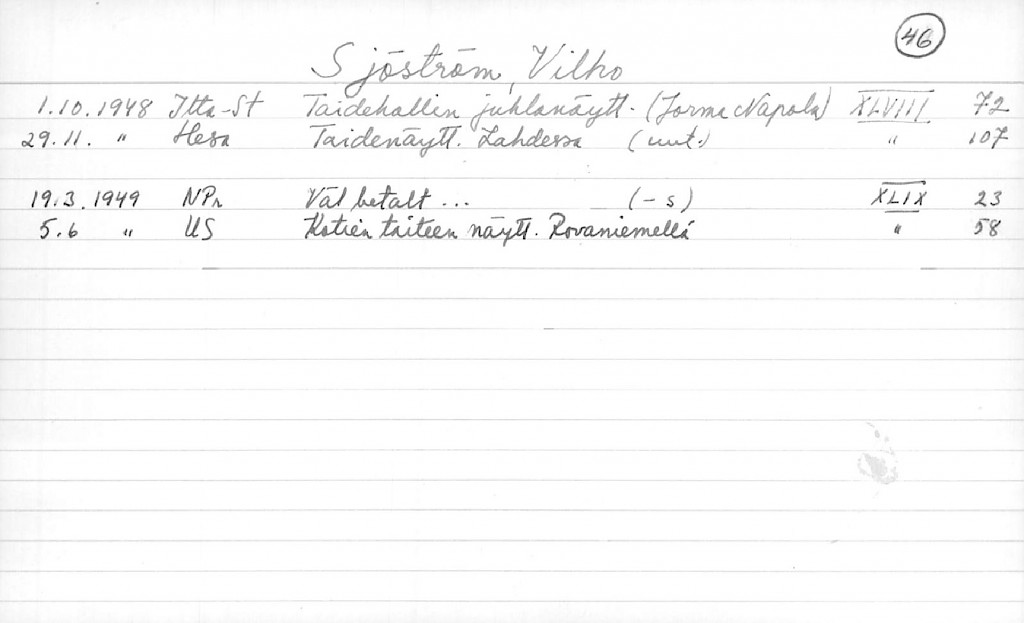 46
Sjöström, Vilho
1.10.1948 Ilta-St Taidehallin juhlanäytt. (Jorma Napola) XLVIII 72
29.11. " Hesa Taidenäytt. Lahdessa (uut.) " 107
19.3.1949 NPr Väl betalt ... (-s) XLIX 23
5.6 " US Kotien taiteen näytt. Rovaniemellä " 58